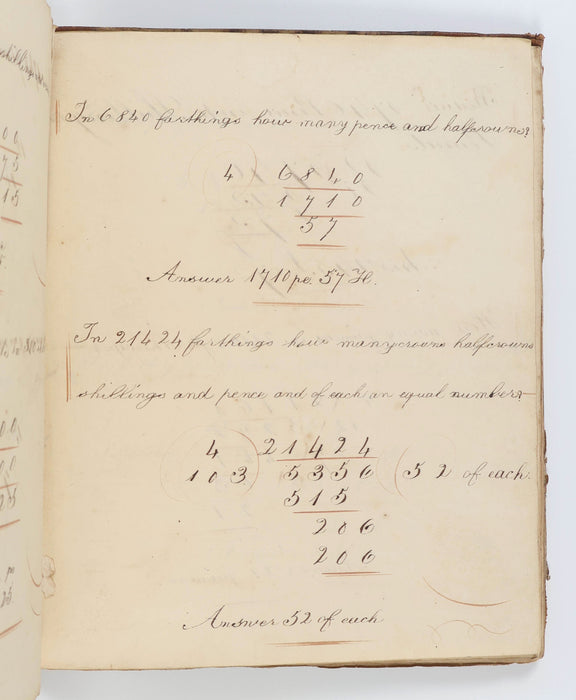 In 6840 farthings how many pence and halfcrowns?
4 6840
1710
57
Answer 1710 pe. 57 H.
In 21424 farthings how many crowns halfcrowns
shillings and pence and of each an equal number?
4 21424
103 5356 (52 of each.
515
206
206
Answer 52 of each